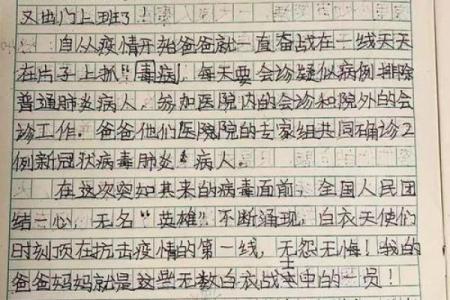 又出门上班了!
自从疫情开始爸爸就一直奋战在一线天天
在片子上抓“毒病”,每天要会诊疑似病例排除
普通肺炎病人,参加医院内的会诊和院外的会
诊工作。爸爸他们医院院的专家组共同确诊2
例新冠状病毒肺炎“病人。
在这次突如其来的病毒面前,全国人民团
结一心,无名“英雄”不断涌现,白衣天使们
时刻顶在抗击疫情的第一线,无怨无悔!我的
爸爸妈妈就是这些无数白衣战士中的一员!